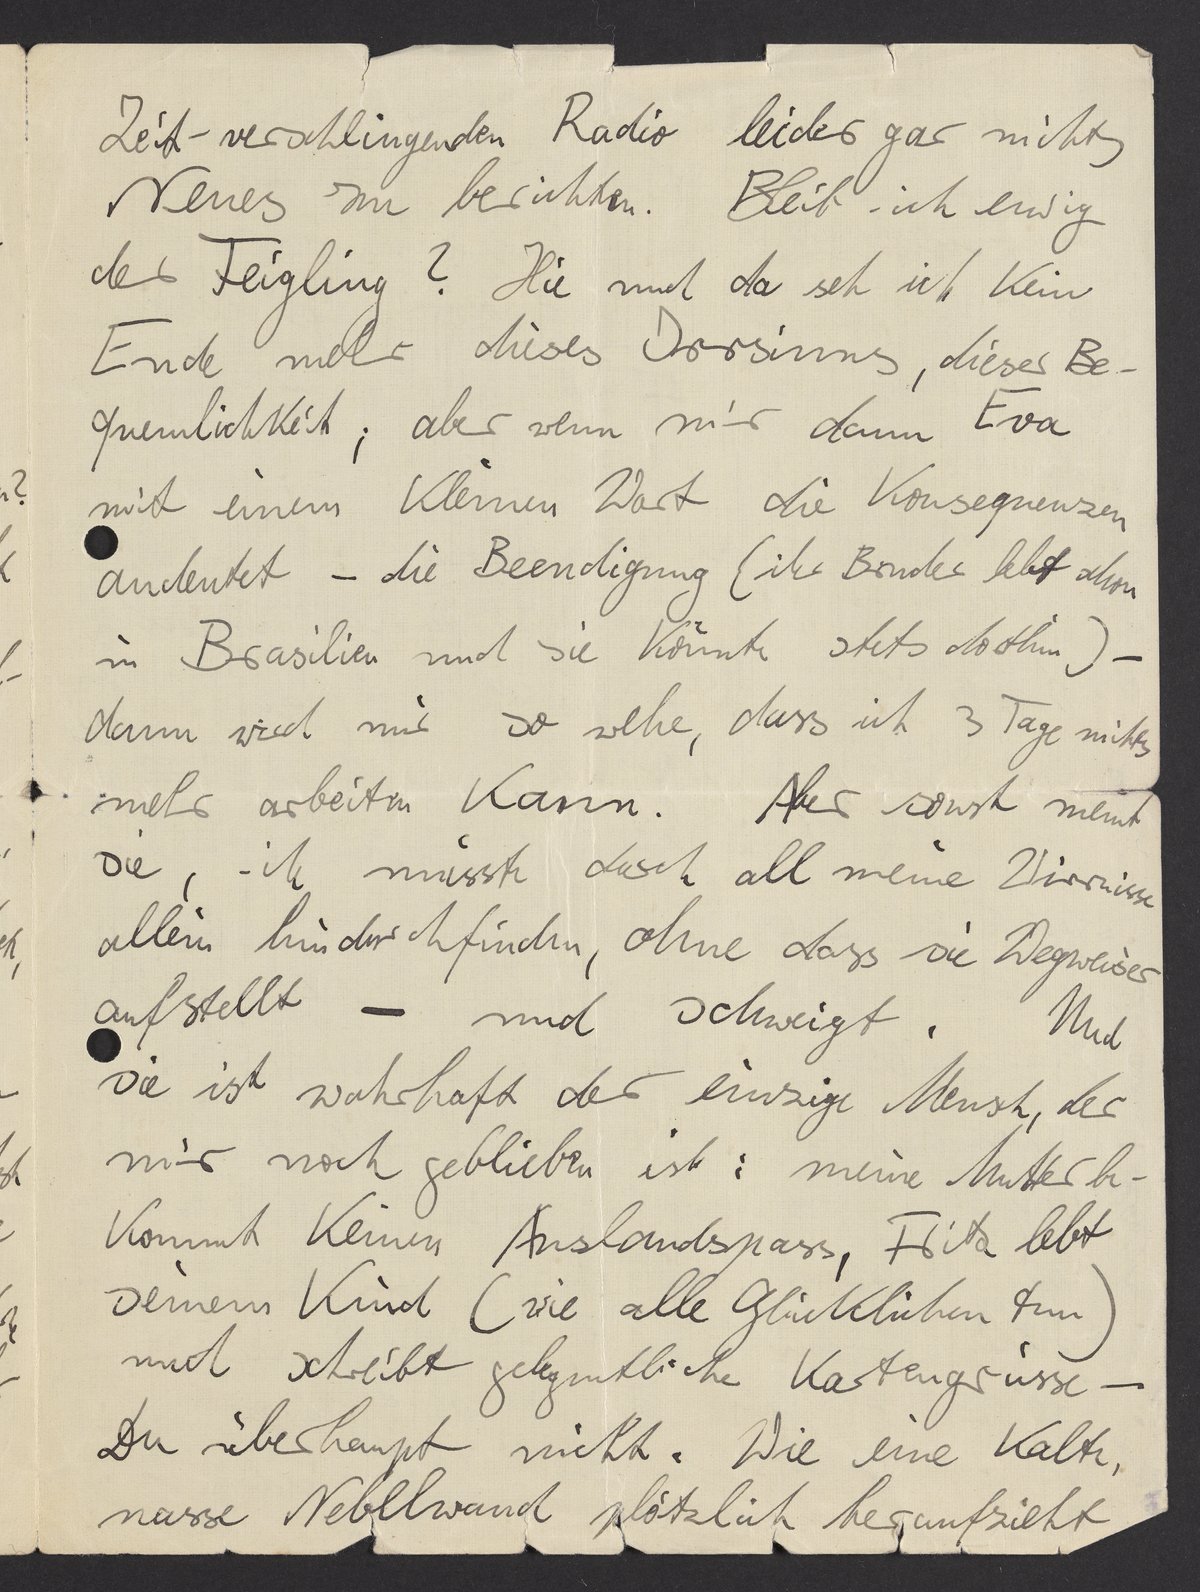 Zeit-verschlingenden Radio leider gar nichts
Neues zu berichten. Bleib ich ewig
der Feigling? Hie und da seh ich kein
Ende mehr dieses Irrsinns, dieser Be-
quemlichkeit; aber wenn mir dann Eva
mit einem kleinen Wort die Konsequenzen
andeutet – die Beendigung (ihr Bruder lebt schon
in Brasilien und sie könnte stets dorthin) –
dann wird mir so wehe, dass ich 3 Tage nichts
mehr arbeiten kann. Aber sonst meint
sie, ich müsste durch all meine Wirrnisse
allein hindurchfinden, ohne dass sie Wegweiser
aufstellt – und schweigt. Und
sie ist wahrhaft der einzige Mensch, der
mir noch geblieben ist: meine Mutter be-
kommt keinen Auslandspass, Fritz lebt
seinem Kind (wie alle Glücklichen tun)
und schreibt gelegentliche Kartengrüsse –
Du überhaupt nicht. Wie eine kalte,
nasse Nebellwand plötzlich heraufzieht